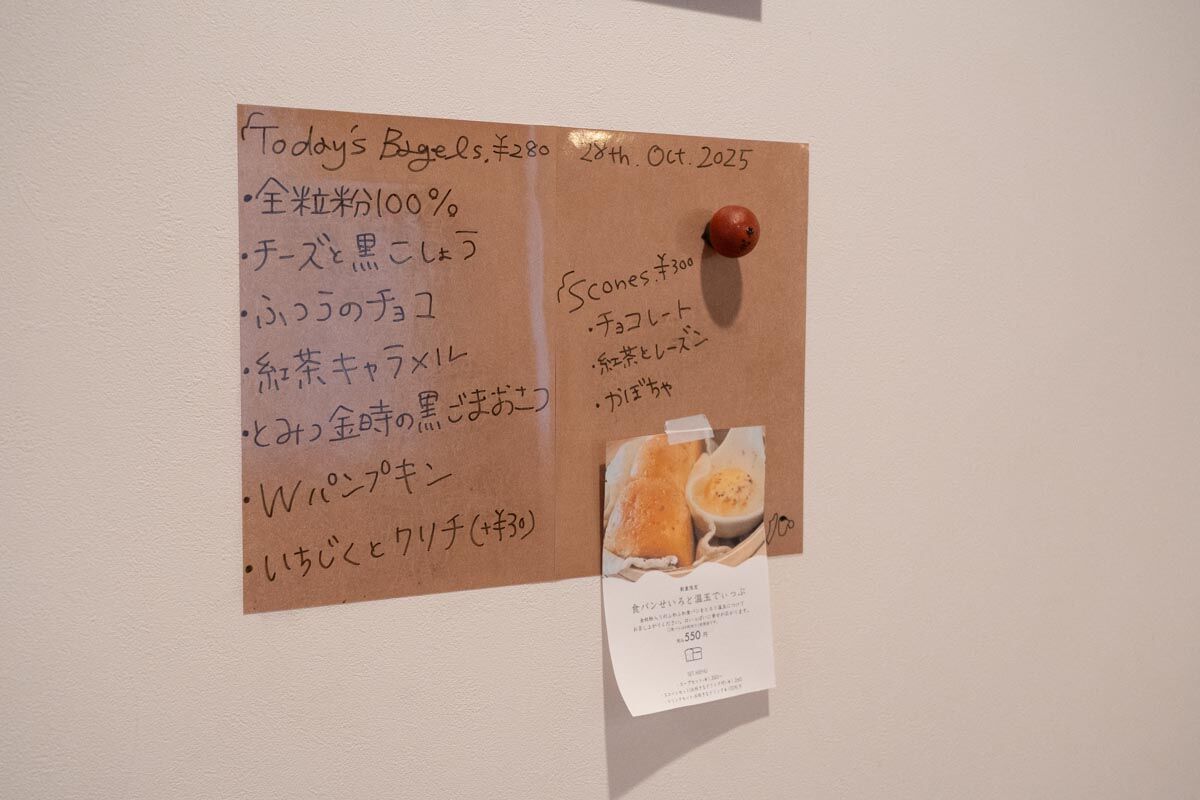 Today's Bagels. ¥280
・全粒粉100%
・チーズと黒こしょう
・ふつうのチョコ
・紅茶キャラメル
・とみつ金時の黒ごまおさつ
・Wパンプキン
・いちじくとクリチ(+¥30)
28th. Oct. 2025
Scones. ¥300
・チョコレート
・紅茶とレーズン
・かぼちゃ
数量限定
食パンせいろと温玉でぃっぷ
税込550円
SET MENU